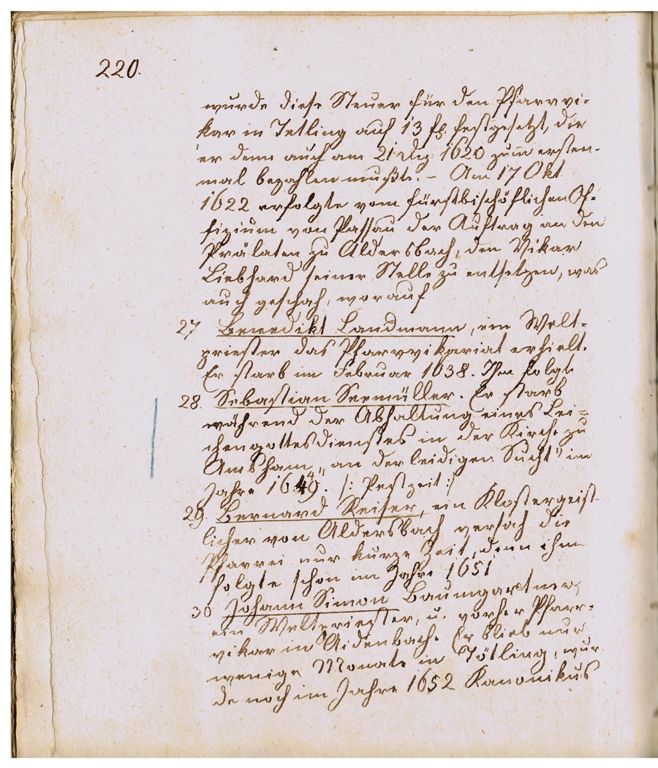 220.
wurde diese Steuer für den Pfarrvi-
kar in Tetling auf 13 fl festgesetzt, die
er denn auch am 21 Dez. 1620 zum ersten-
mal bezahlen mußte. – Am 17 Okt.
1622 erfolgte vom fürstbischöflichen Of-
fizium von Passau der Auftrag an den
Prälaten zu Aldersbach, den Vikar
Liebhard seiner Stelle zu entsetzen, was
auch geschah, worauf
27 Benedikt Landmann, ein Welt-
priester das Pfarrvikariat erhielt.
Er starb im Februar 1638. Ihm folgte
28. Sebastian Seemüller. Er starb
während der Abhaltung eines Lei-
chengottesdienstes in der Kirche zu
Amsham, „an der leidigen Sucht" im
Jahre 1649. /: Pestzeit :/
29. Bernard Reiser, ein Klostergeist-
licher von Aldersbach versah die
Pfarrei nur kurze Zeit, denn ihm
folgte schon im Jahre 1651
30 Johann Simon Baumgartner,
ein Weltpriester, u. vorher Pfarr-
vikar in Aidenbach. Er blieb nur
wenige Monate in Tötling, wur-
de noch im Jahre 1652 Kanonikus